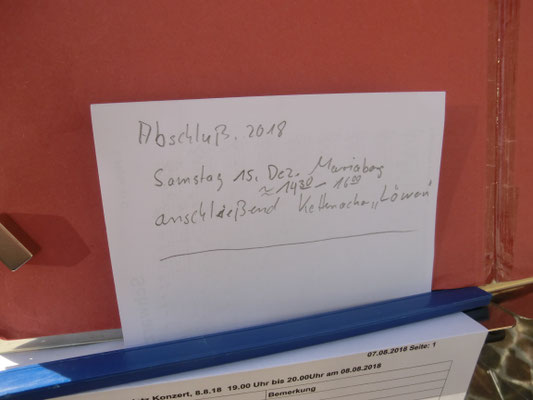 Abschluß. 2018
Samstag 15. Dez. Mariaberg
≈ 14³⁰ – 16⁰⁰
anschließend Kettenacker „Löwen"
07.08.2018 Seite: 1
Konzert, 8.8.18 19.00 Uhr bis 20.00Uhr am 08.08.2018
Bemerkung